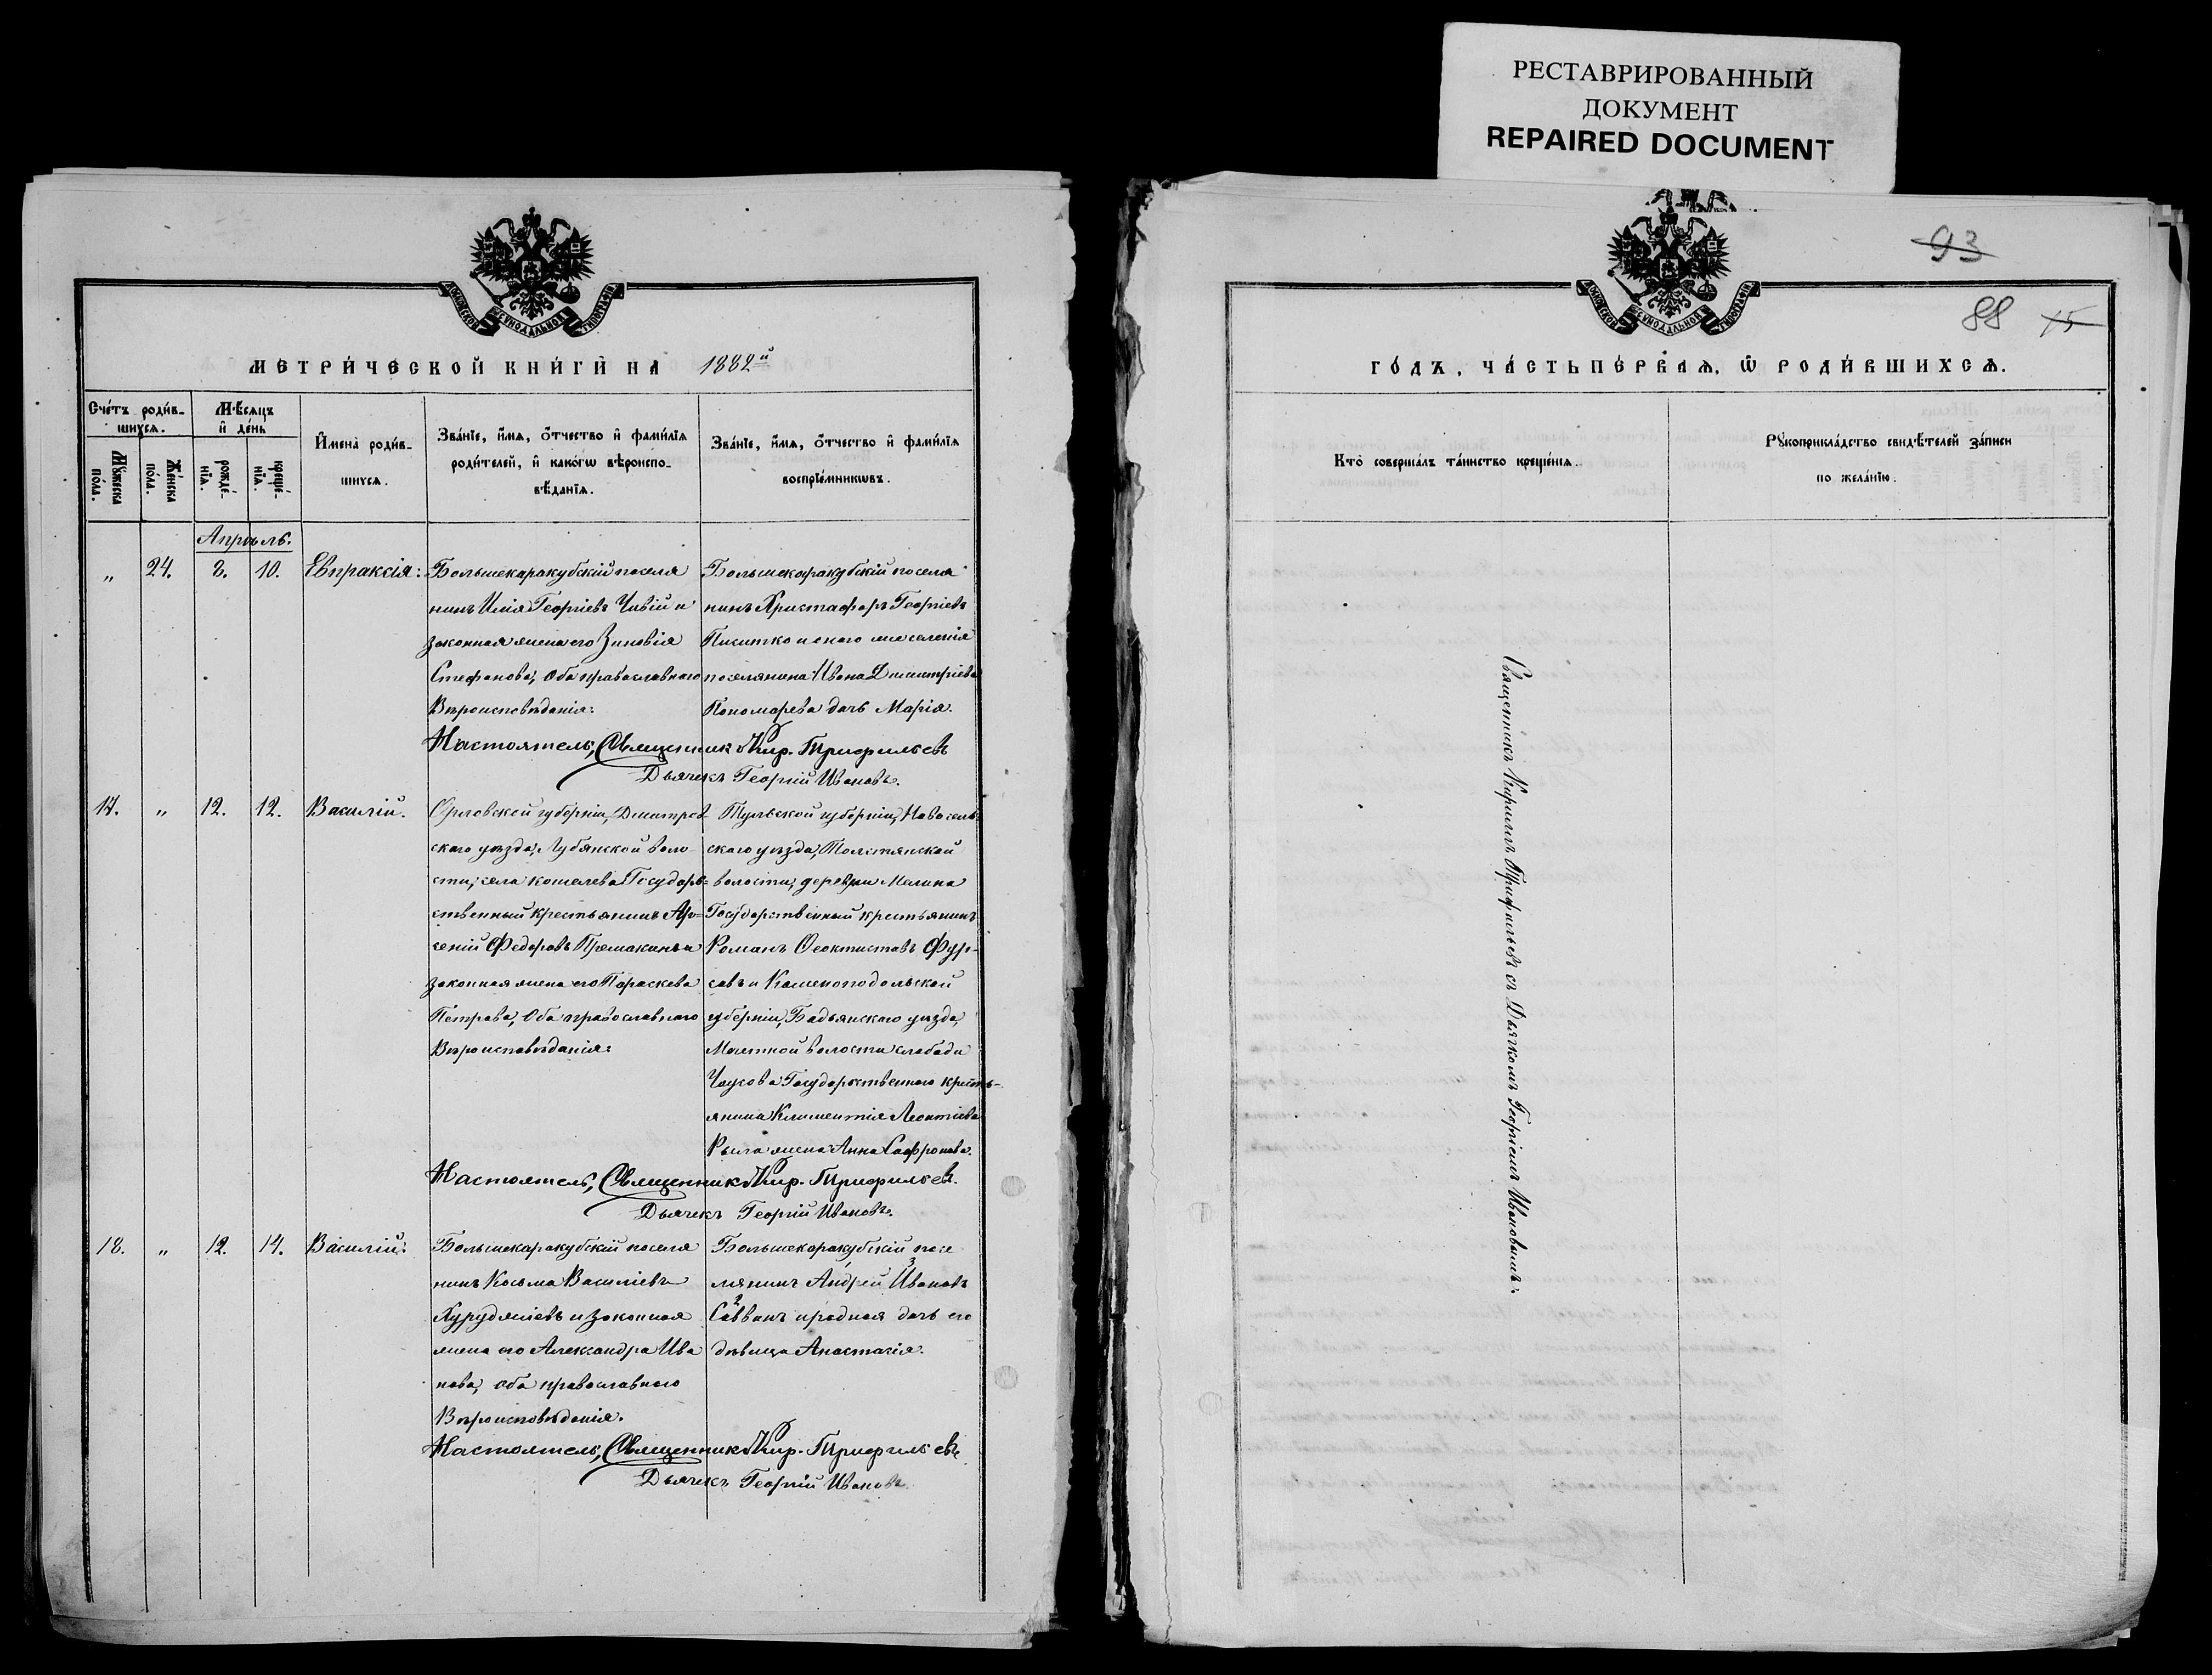 РЕСТАВРИРОВАННЫЙ
ДОКУМЕНТ
REPAIRED DOCUMENT
93
88 15
МЕТРИ́ЧЕСКОЙ КНИ́ГИ НА 1882й
Сче́тъ роди́в-
шихсѧ.
Мѣ́сѧцъ
и҆ де́нь
Мꙋ́жеска
по́ла.
Же́нска
по́ла.
рожде́-
нїѧ.
креще́-
нїѧ.
И҆мена̀ роди́в-
шихсѧ.
Зва́нїе, и҆́мѧ, ѻ҆́тчество и҆ фами́лїѧ
роди́телей, и҆ како́гѡ вѣроиспо-
вѣ́данїѧ.
Зва́нїе, и҆́мѧ, ѻ҆́тчество и҆ фами́лїѧ
воспрїе́мникѡвъ.
Апрѣль.
„ 24. 8. 10. Евпраксія:
Большекаракубскій поселя
нинъ Илія Георгіевъ Чивій и
законная жена его Зиновія
Стефанова, Оба православнаго
Вѣроисповѣданія:
Большекаракубскій поселя
нинъ Христафоръ Георгіевъ
и онаго же селенія
поселянина Ивана Димитріева
Пономарева дочь Марія.
Настоятель, Священник Кир. Трифильевъ
Дьячекъ Георгій Ивановъ.
17. „ 12. 12. Василій.
Орловской губерніи, Дмитров
скаго уѣзда, Лубянской воло-
сти, села Кошелева Государ=
ственный крестьянинъ Ар=
сеній Федоровъ Премакинъ и
законная жена его Параскева
Петрова, Оба православнаго
Вѣроисповѣданія:
Тульской губерніи, Новосиль
скаго уѣзда, Толстянской
волости, деревни Малина
Государственный крестьянинъ
Романъ Феоктистовъ Фур-
совъ и Каменоподольской
губерніи, Бадьянскаго уѣзда,
волости слободы
Государственного кресть-
янина Климентія Леонтіева
Рыла жена Анна Сафронова.
Настоятель, Священник Кир. Трифильевъ.
Дьячекъ Георгій Ивановъ.
18. „ 12. 14. Василій:
Большекаракубскій поселя
нинъ Косьма Василіевъ
Хурудяліевъ и законная
жена его Александра Ива
нова, оба православнаго
Вѣроисповѣданія.
Большекаракубскій посе
лянинъ Андрей Ивановъ
Саввинъ и родная дочь его
дѣвица Анастасія.
Настоятель, Священник Кир. Трифильевъ
Дьячекъ Георгій Ивановъ
ГО́ДЪ, ЧА́СТЬ ПЕ́РВАѦ, Ѡ҆ РОДИ́ВШИХСѦ.
Кто̀ соверша́лъ та́инство креще́нїѧ.
Рꙋкоприкла́дство свидѣ́телей за́писи
по жела́нїю.
Священникъ Кириллъ Трифильевъ съ Дьячкомъ Георгіемъ Ивановымъ: